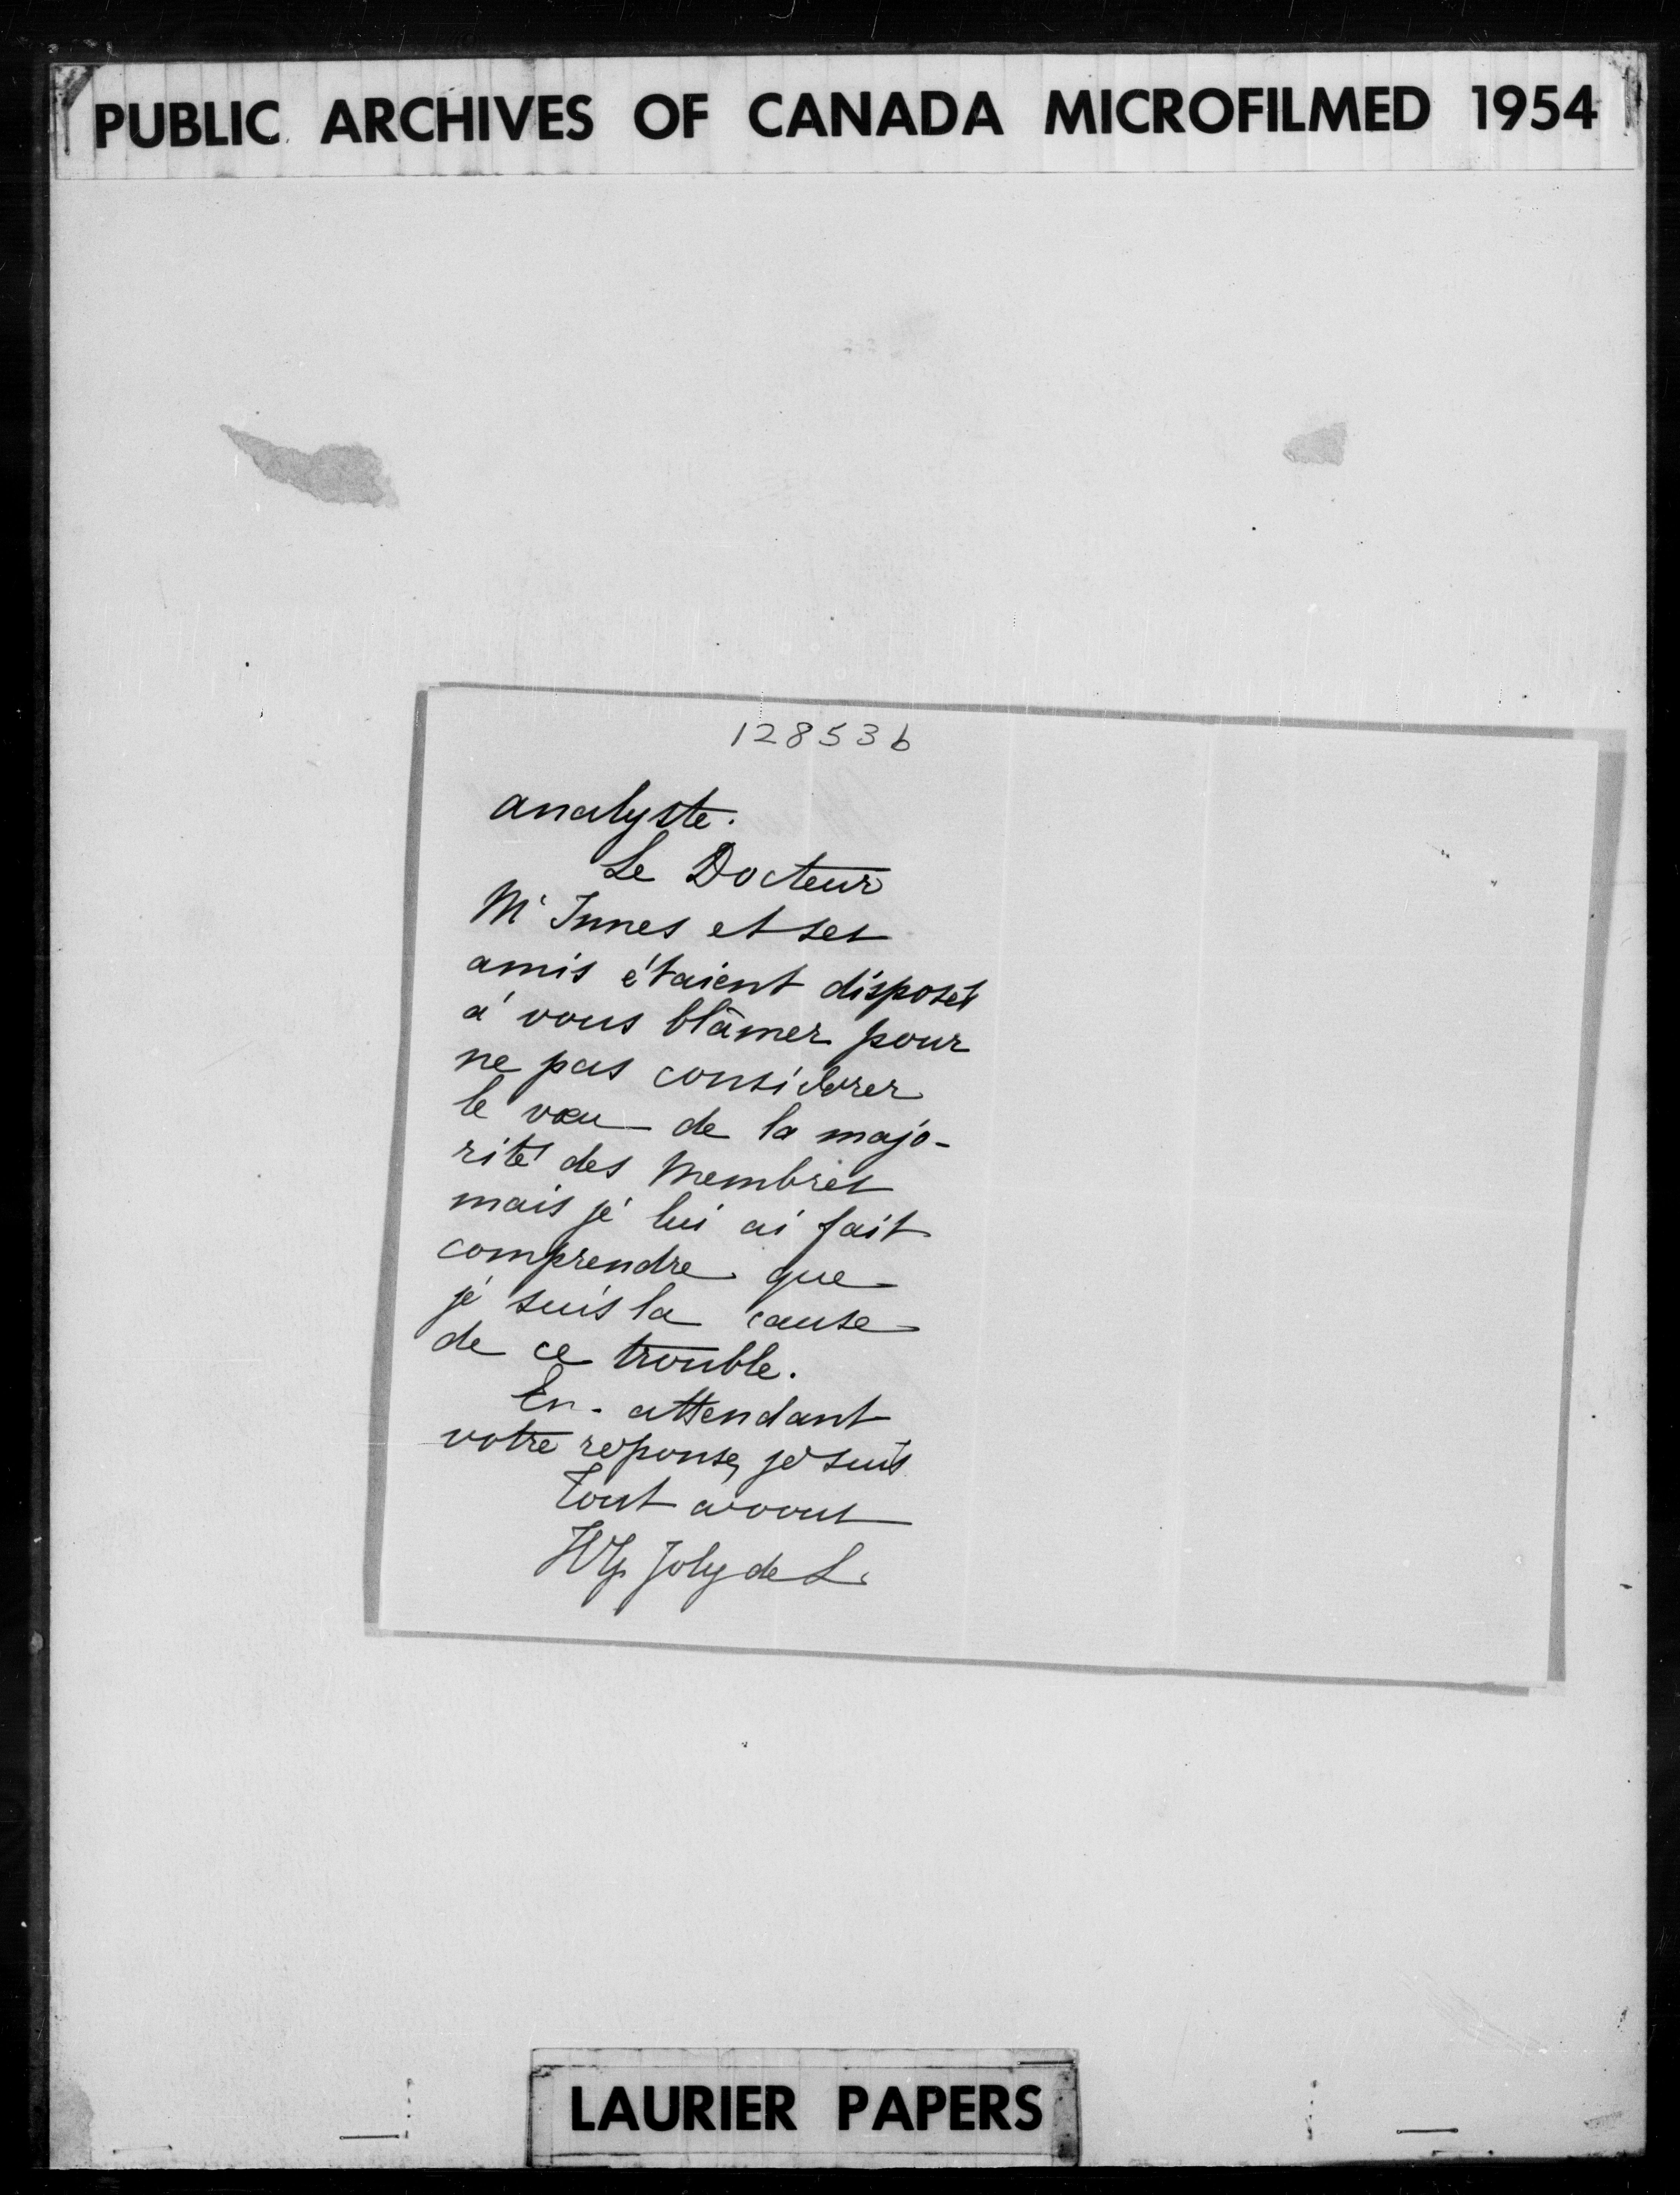 PUBLIC ARCHIVES OF CANADA MICROFILMED 1954
128536
analyste.
Le Docteur
Mc Innes et ses
amis étaient disposés
à vous blâmer pour
ne pas considérer
le vœu de la majo-
rité des Membres
mais je lui ai fait
comprendre que
je suis la cause
de ce trouble.
En attendant
votre réponse, je suis
Tout à vous
HG. Joly de L.
LAURIER PAPERS